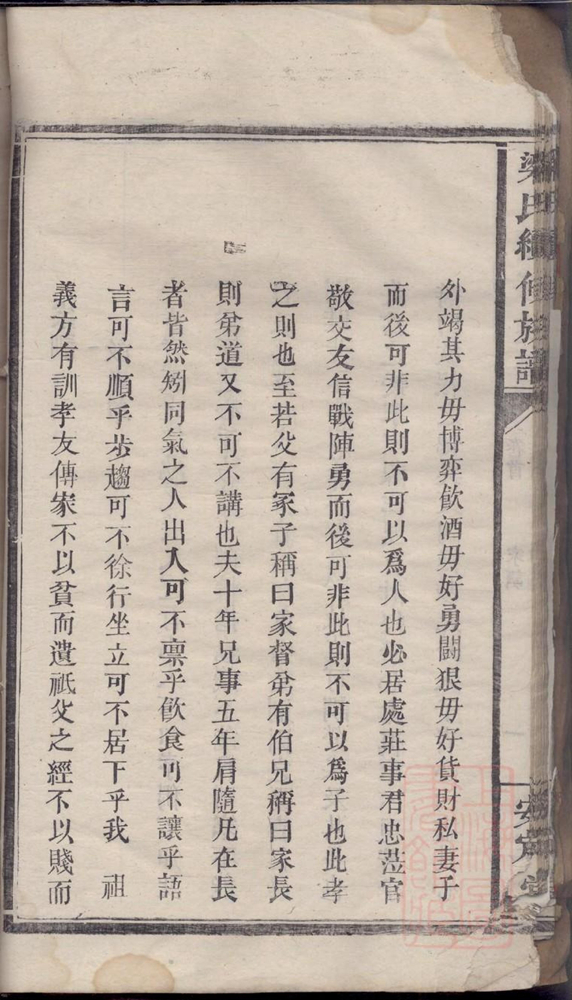 梁氏續修族譜
外竭其力毋博弈飲酒毋好勇鬪狠毋好貨財私妻子
而後可非此則不可以爲人也必居處莊事君忠蒞官
敬交友信戰陣勇而後可非此則不可以爲子也此孝
之則也至若父有冢子稱曰家督弟有伯兄稱曰家長
則弟道又不可不講也夫十年兄事五年肩隨凡在長
者皆然矧同氣之人出入可不禀乎飲食可不讓乎語
言可不順乎步趨可不徐行坐立可不居下乎我 祖
義方有訓孝友傳家不以貧而遺祇父之經不以賤而